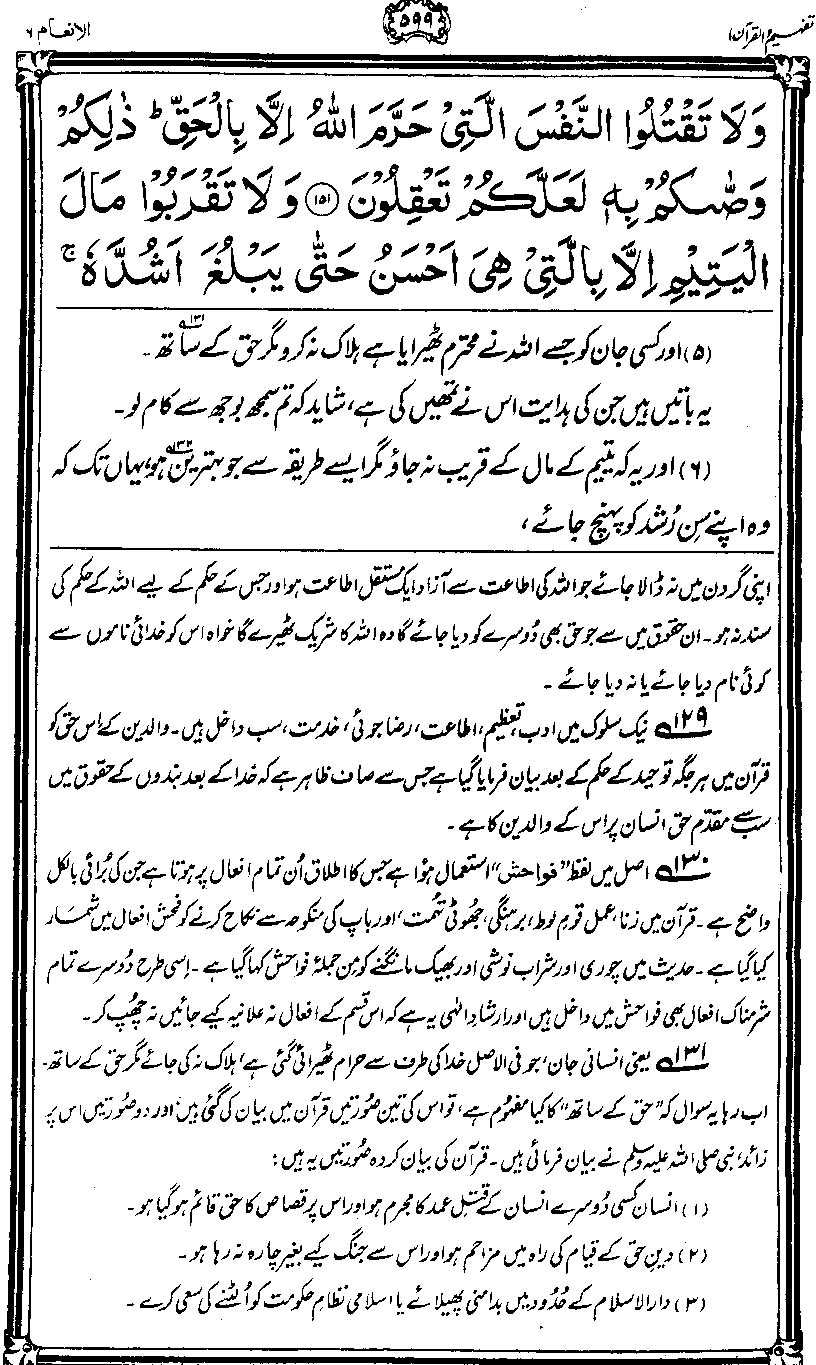 تفہیم القرآن ۱
۵۹۹
الانعام ۶
وَلَا تَقْتُلُوا النَّفْسَ الَّتِیْ حَرَّمَ اللّٰهُ اِلَّا بِالْحَقِّ ؕ ذٰلِكُمْ
وَصّٰىكُمْ بِهٖ لَعَلَّكُمْ تَعْقِلُوْنَ ﴿۱۵۱﴾ وَلَا تَقْرَبُوْا مَالَ
الْیَتِیْمِ اِلَّا بِالَّتِیْ هِیَ اَحْسَنُ حَتّٰی یَبْلُغَ اَشُدَّهٗ ۚ
(۵) اور کسی جان کو جسے اللہ نے محترم ٹھیرایا ہے ہلاک نہ کرو مگر حق کے ساتھ۱۳۱۔
یہ باتیں ہیں جن کی ہدایت اس نے تمھیں کی ہے، شاید کہ تم سمجھ بوجھ سے کام لو۔
(۶) اور یہ کہ یتیم کے مال کے قریب نہ جاؤ مگر ایسے طریقہ سے جو بہترین ہو۱۳۲، یہاں تک کہ
وہ اپنے سِن رُشد کو پہنچ جائے،
اپنی گردن میں نہ ڈالا جائے جو اللہ کی اطاعت سے آزاد ایک مستقل اطاعت ہو اور جس کے حکم کے لیے اللہ کے حکم کی
سند نہ ہو۔ ان حقوق میں سے جو حق بھی دُوسرے کو دیا جائے گا وہ اللہ کا شریک ٹھیرے گا خواہ اس کو خدائی ناموں سے
کوئی نام دیا جائے یا نہ دیا جائے۔
۱۲۹ نیک سلوک میں ادب، تعظیم، اطاعت، رضا جوئی، خدمت، سب داخل ہیں۔ والدین کے اس حق کو
قرآن میں ہر جگہ توحید کے حکم کے بعد بیان فرمایا گیا ہے جس سے صاف ظاہر ہے کہ خدا کے بعد بندوں کے حقوق میں
سب سے مقدّم حق انسان پر اس کے والدین کا ہے۔
۱۳۰ اصل میں لفظ ”فواحش“ استعمال ہؤا ہے جس کا اطلاق اُن تمام افعال پر ہوتا ہے جن کی بُرائی بالکل
واضح ہے۔ قرآن میں زنا، عملِ قومِ لوط، برہنگی، جُھوٹی تُہمت، اور باپ کی منکوحہ سے نکاح کرنے کو فحش افعال میں شمار
کیا گیا ہے۔ حدیث میں چوری اور شراب نوشی اور بھیک مانگنے کو مِن جملۂ فواحش کہا گیا ہے۔ اِسی طرح دُوسرے تمام
شرمناک افعال بھی فواحش میں داخل ہیں اور ارشادِ الٰہی یہ ہے کہ اس قسم کے افعال نہ علانیہ کیے جائیں نہ چُھپ کر۔
۱۳۱ یعنی انسانی جان، جو فی الاصل خدا کی طرف سے حرام ٹھیرائی گئی ہے، ہلاک نہ کی جائے مگر حق کے ساتھ۔
اب رہا یہ سوال کہ ”حق کے ساتھ“ کا کیا مفہُوم ہے، تو اس کی تین صُورتیں قرآن میں بیان کی گئی ہیں، اور دو صُورتیں اس پر
زائد، نبی صلی اللہ علیہ وسلم نے بیان فرمائی ہیں۔ قرآن کی بیان کردہ صُورتیں یہ ہیں:
(۱) انسان کسی دُوسرے انسان کے قتلِ عمد کا مجرم ہو اور اس پر قصاص کا حق قائم ہو گیا ہو۔
(۲) دینِ حق کے قیام کی راہ میں مزاحم ہو اور اس سے جنگ کیے بغیر چارہ نہ رہا ہو۔
(۳) دارالاسلام کے حُدُود میں بدامنی پھیلائے یا اسلامی نظامِ حکومت کو اُلٹنے کی سعی کرے۔